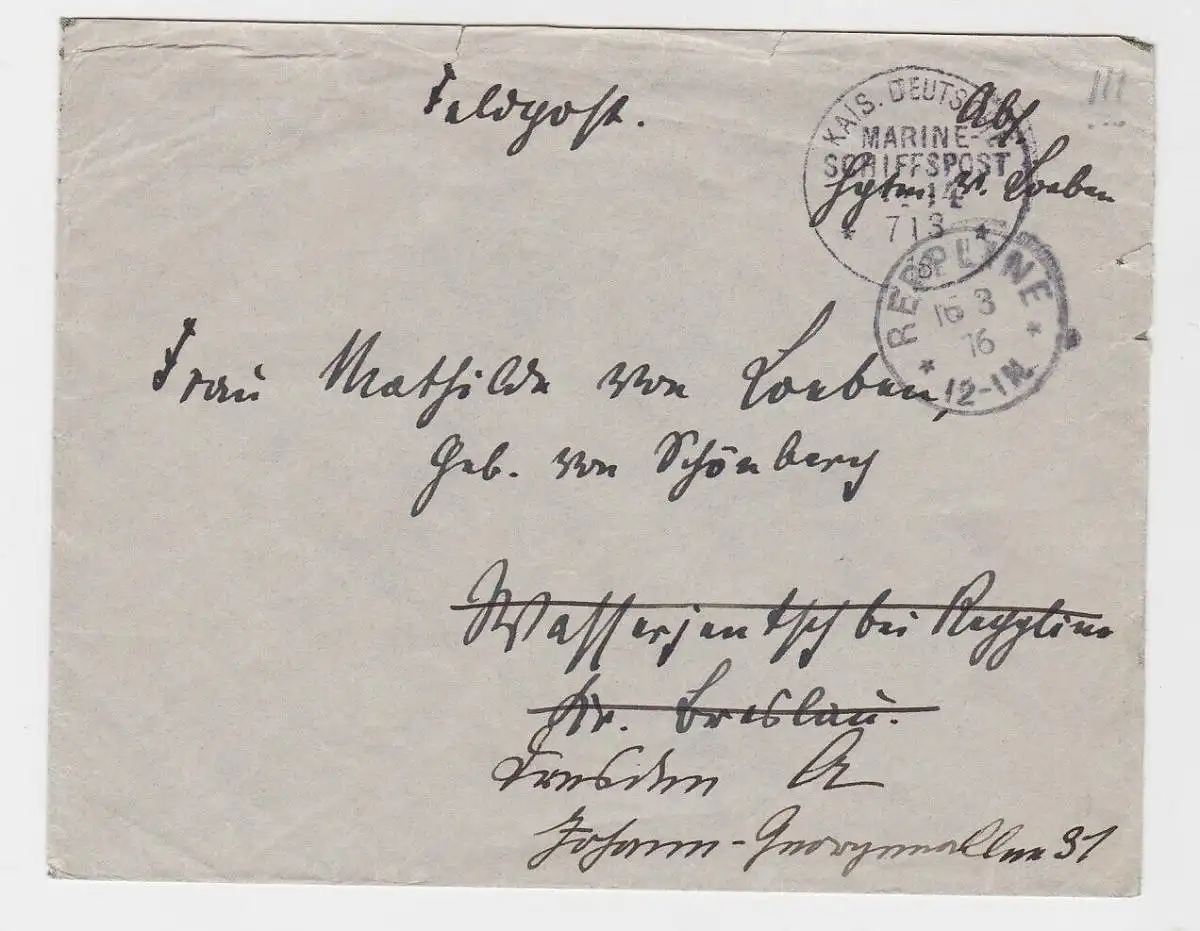 Feldpost.
Abs.
Hptm. v. Loeben
KAIS. DEUTSCHE
MARINE-
SCHIFFSPOST
* 713 *
REPPLINE
16 3
16
* 12-1N. *
Frau Mathilde von Loeben,
Geb. von Schönberg
Wasserjentsch bei Reppline
Kr. Breslau.
Dresden A
Johann-Georgenallee 31